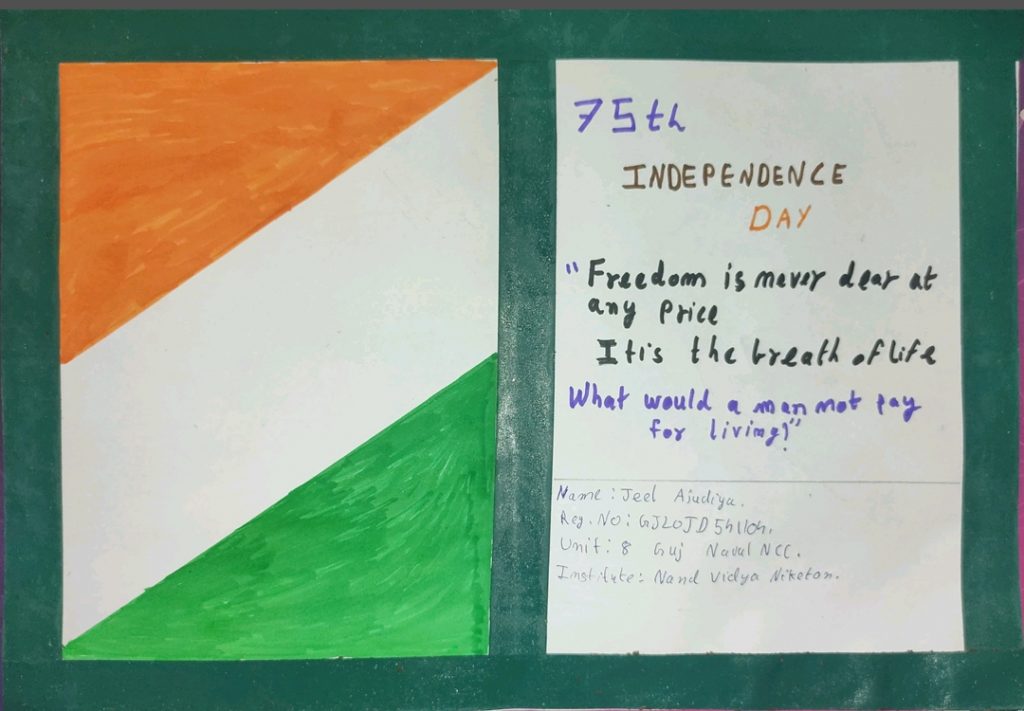 75th
INDEPENDENCE
DAY
"Freedom is never dear at
any Price
It is the breath of life
What would a man not pay
for living?"
Name : Jeel Ajudiya.
Reg. No : GJ20JD541104.
Unit : 8 Guj Naval NCC.
Institute : Nand Vidya Niketan.